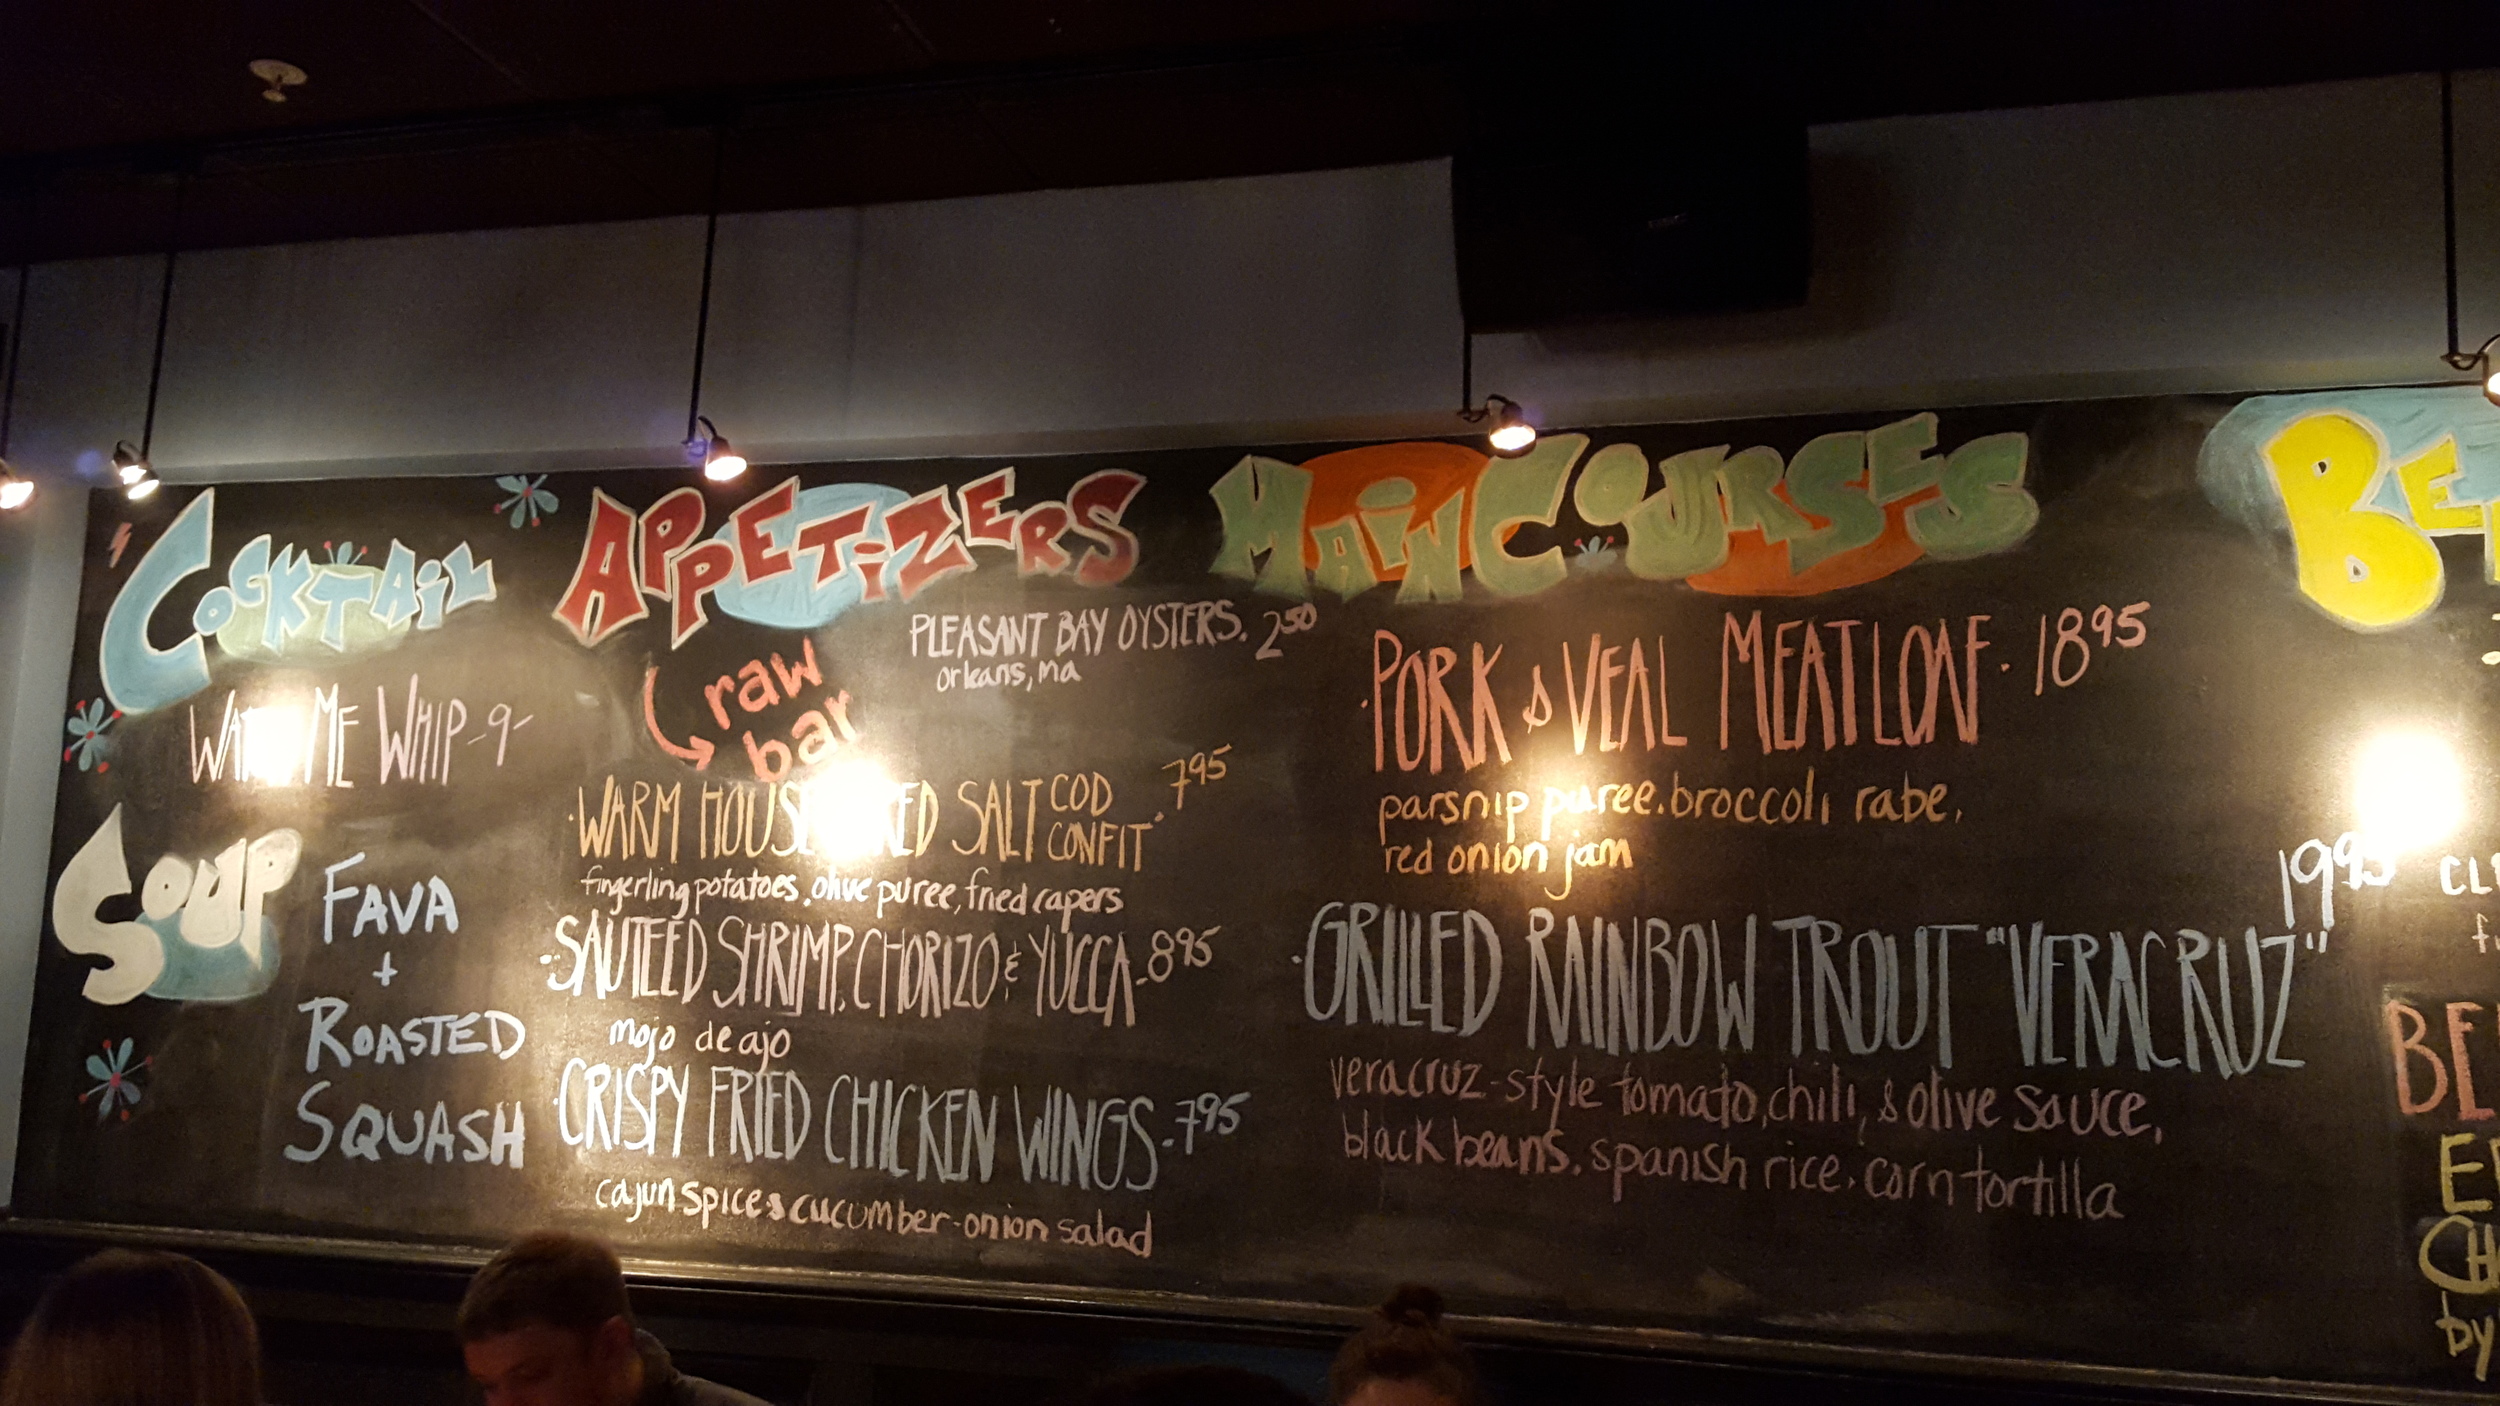 COCKTAIL
ME WHIP -9-
SOUP
FAVA
+
ROASTED
SQUASH
APPETIZERS
raw
bar
PLEASANT BAY OYSTERS. 2 50
orleans, ma
·WARM SALT COD CONFIT· 7 95
fingerling potatoes, olive puree, fried capers
·SAUTEED SHRIMP, CHORIZO & YUCCA - 8 95
mojo de ajo
·CRISPY FRIED CHICKEN WINGS - 7 95
cajun spice & cucumber-onion salad
MAIN COURSES
·PORK & VEAL MEATLOAF· 18 95
parsnip puree, broccoli rabe,
red onion jam
19 95
·GRILLED RAINBOW TROUT "VERACRUZ"
veracruz-style tomato, chili, & olive sauce,
black beans, spanish rice, corn tortilla
by